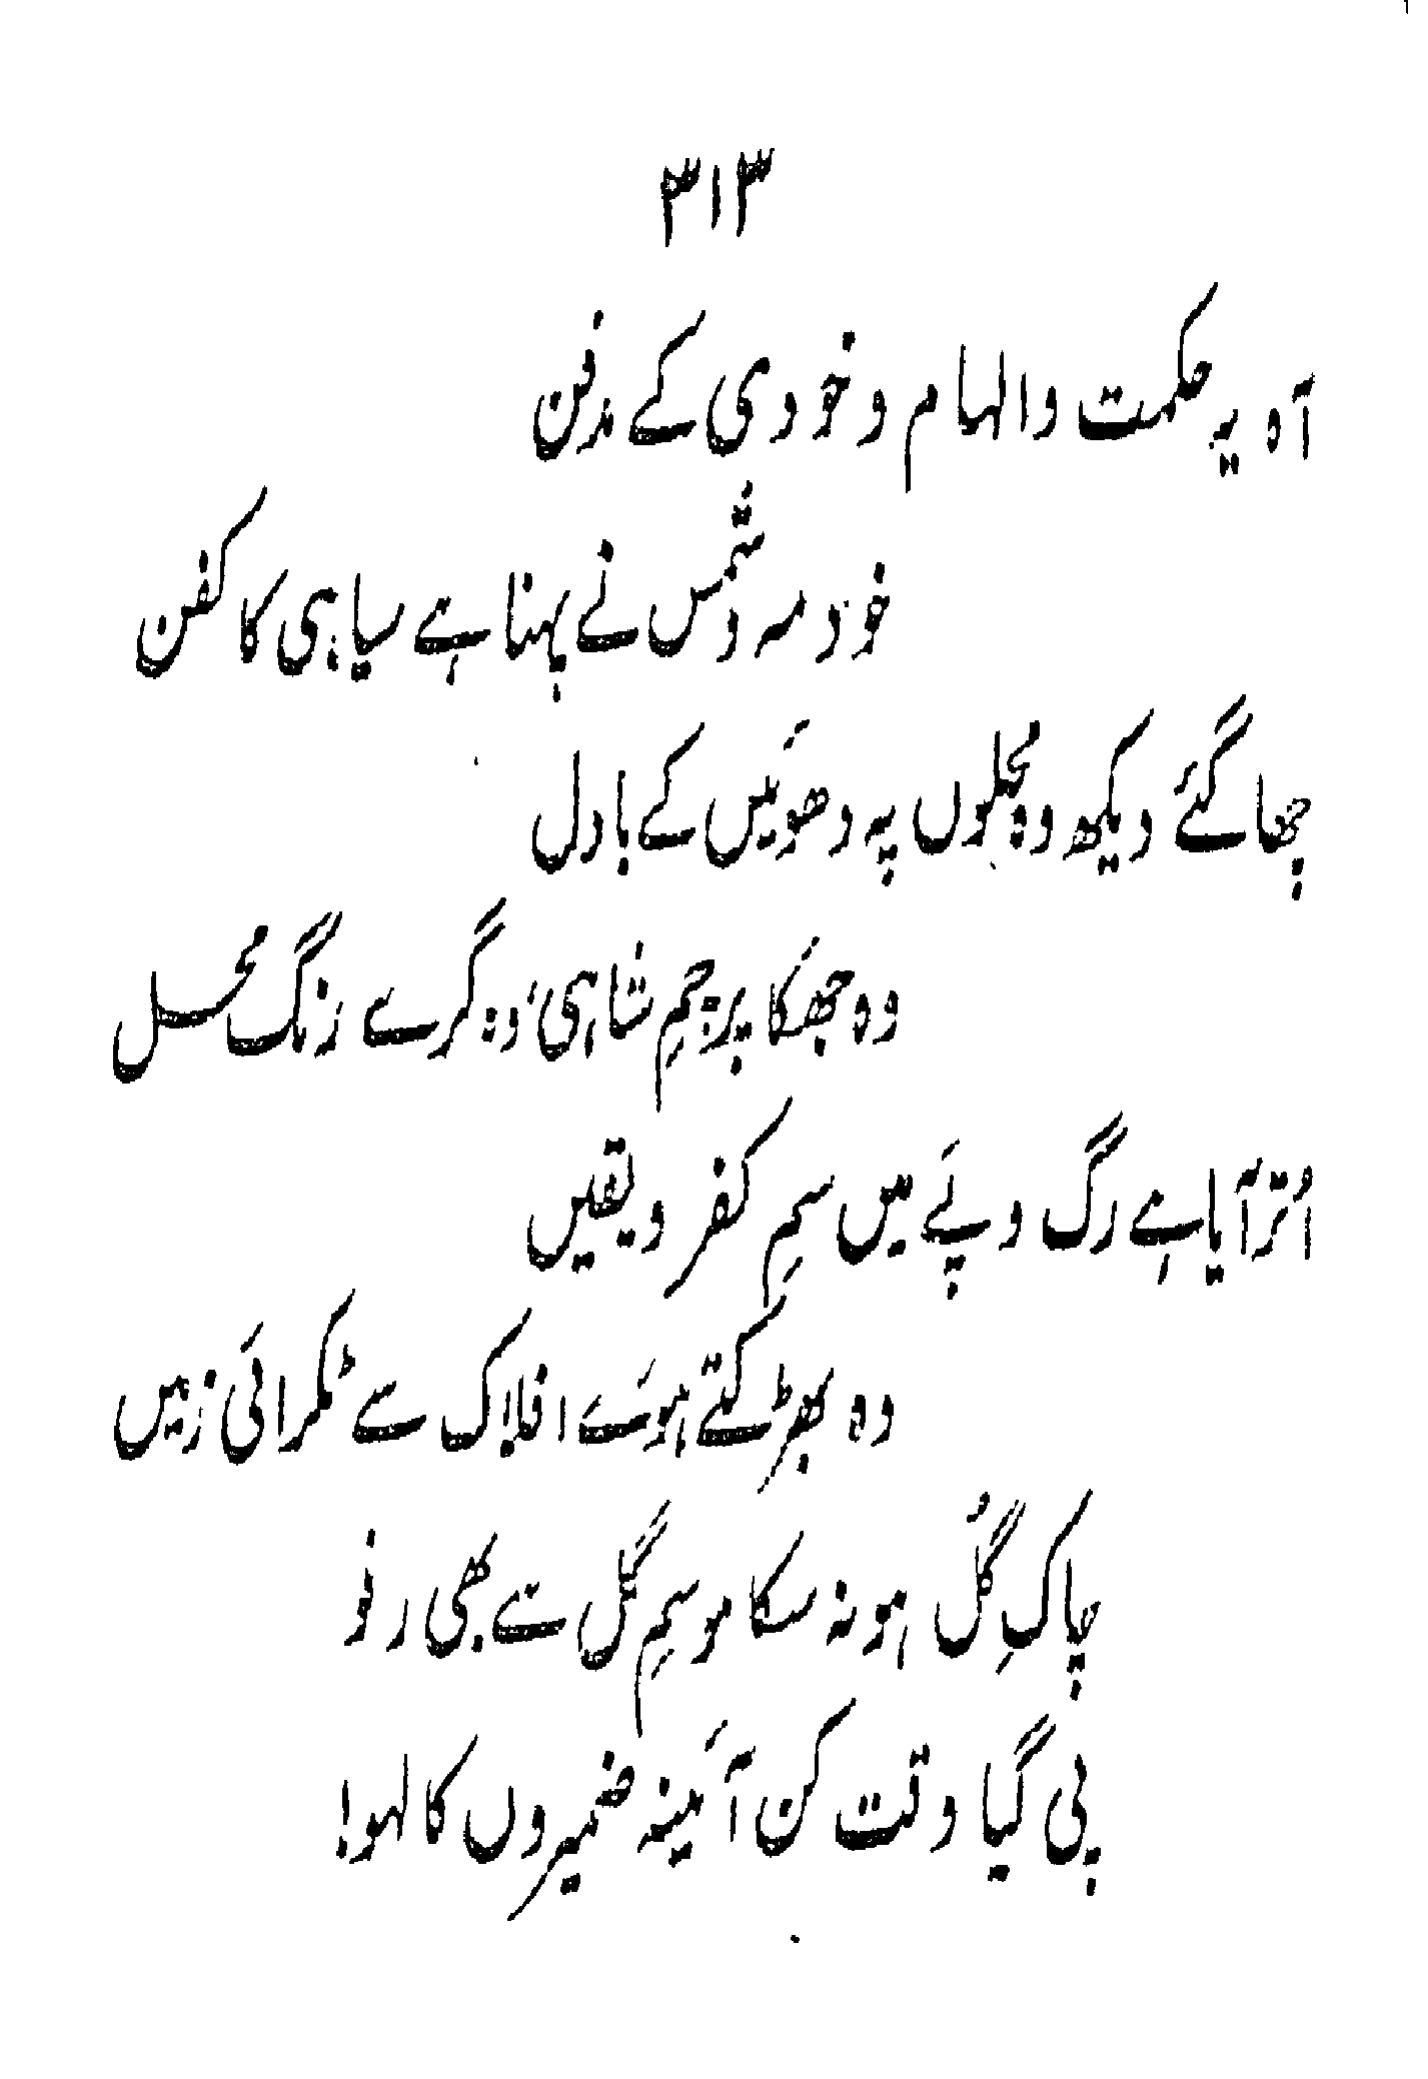 ۳۱۳
آہ یہ حکمت و الہام و خودی کے مدفن
خود مہ و شمس نے پہنا ہے سیاہی کا کفن
چھا گئے دیکھ وہ محلوں پہ دھوئیں کے بادل
وہ جھکا پرچمِ شاہی، وہ گرے رنگ محل
اُتر آیا ہے رگ و پے میں سمِ کفر و یقیں
وہ بھڑکتے ہوئے افلاک سے ٹکرائی زمیں
چاکِ گُل ہو نہ سکا موسمِ گل سے بھی رفو
پی گیا وقت کن آئینہ ضمیروں کا لہو!